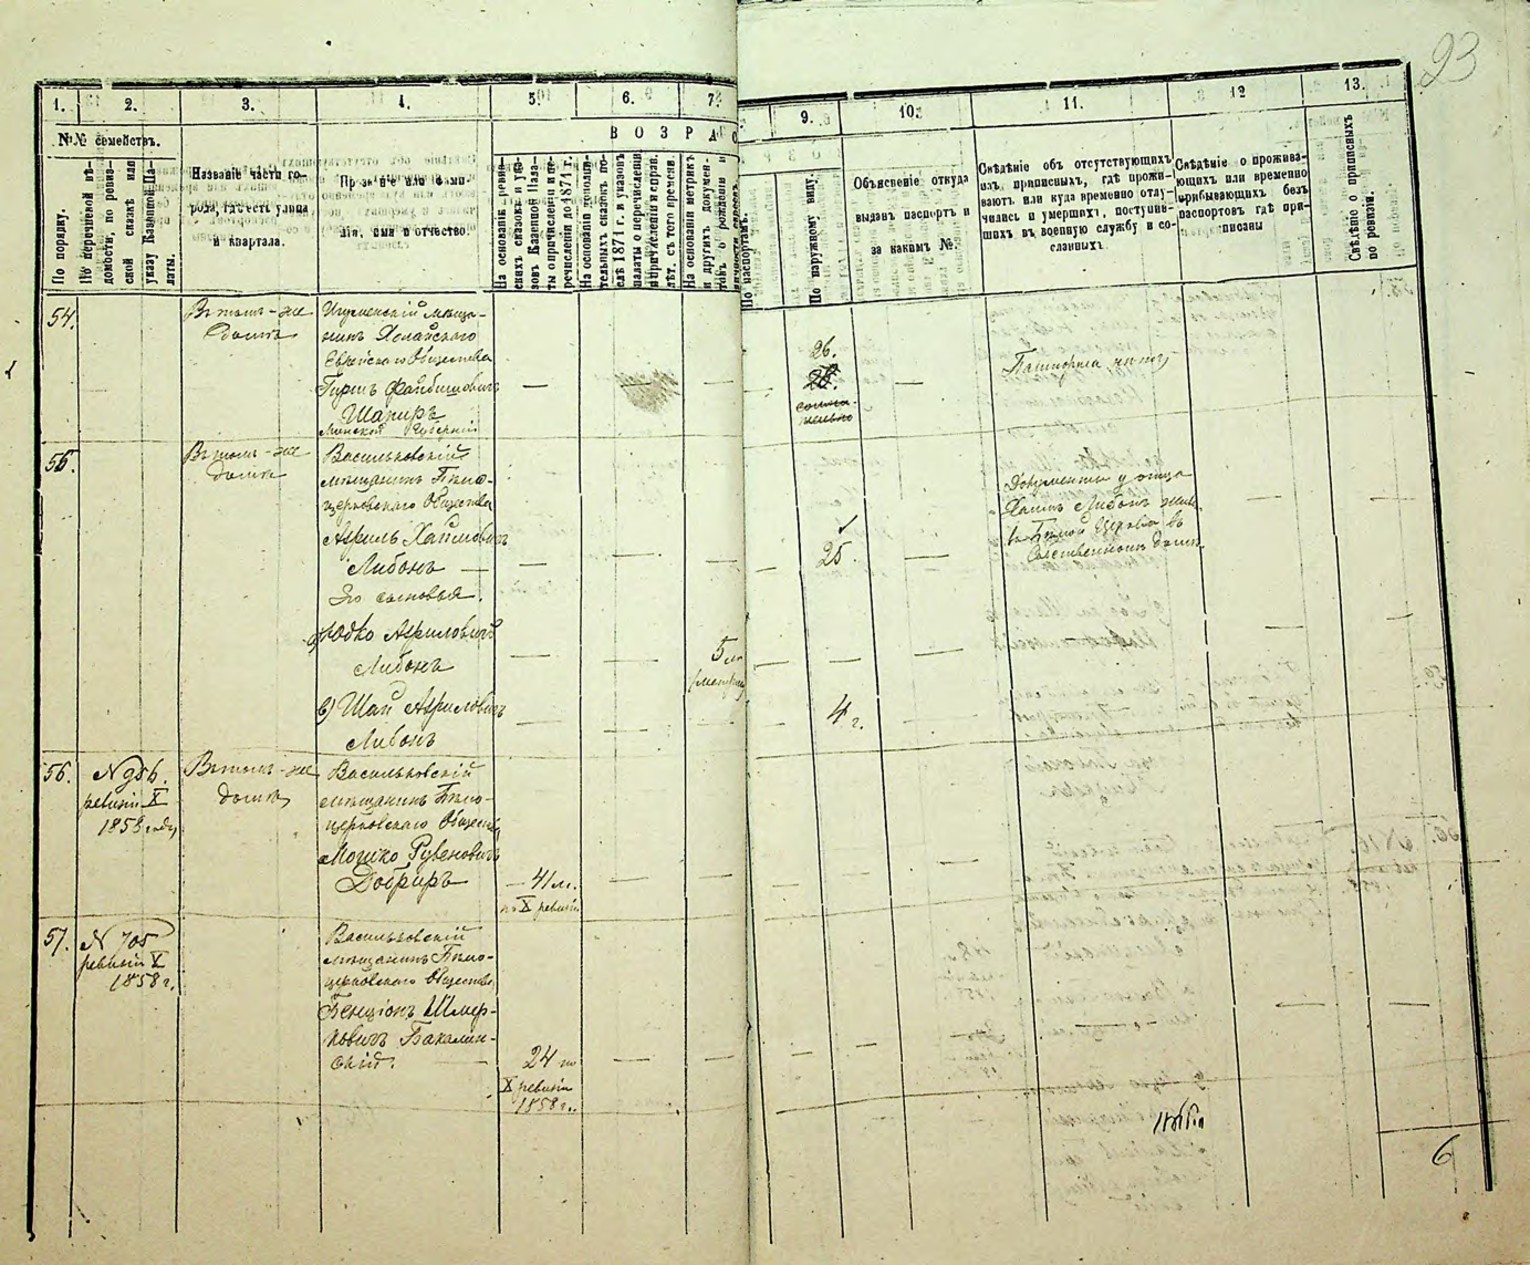 23
1.
2.
3.
4.
5.
6.
7.
9.
10.
11.
12
13.
№№ семействъ.
ВОЗРАС
По порядку.
По перечневой вѣ-
домости, по ревиз-
ской сказкѣ или
указу Казанной Па-
латы.
Названіе части го-
рода, гдѣ есть улица
и квартала.
Прозваніе или фами-
лія, имя и отчество.
На основаніи ревиз-
скихъ сказокъ и ука-
зовъ Казенной Пала-
ты о причисленіи и пе-
речисленіи до 1871 г.
На основаніи дополни-
тельныхъ сказокъ по-
слѣ 1871 г. и указовъ
палаты о перечисленіи
и причисленіи и справ.
лѣт. съ того времени.
На основаніи метрикъ
и другихъ докумен-
товъ о рожденіи и
По паспортамъ.
По наружному виду.
Объясненіе откуда
выданъ паспортъ и
за какимъ №.
Свѣдѣніе объ отсутствующихъ
изъ приписныхъ, гдѣ прожи-
ваютъ или куда временно отлу-
чились и умершихъ, поступив-
шихъ въ военную службу и со-
сланныхъ
Свѣдѣніе о прожива-
ющихъ или временно
прибывающихъ безъ
паспортовъ гдѣ при-
писаны
Свѣдѣніе о приписныхъ
по ревизіи.
54.
Въ томъ-же
домѣ
Игуменскій мѣща-
нинъ
Еврейскаго Общества
Гиршъ Файбишовичъ
Шапиръ
Минской Губерніи
26.
Паспорта нѣтъ
55.
Въ томъ-же
домѣ
Васильковскій
мѣщанинъ Бѣло-
церковскаго Общества
Азриль Хаимовичъ
Либонъ
Его сыновья.
25.
Документы у отца
Хаима Либонъ живе.
въ Бѣлой Церкви въ
Собственномъ домѣ
а) Юдко Азриловичъ
Либонъ
5 л.
в) Шая Азриловичъ
Либонъ
4 г.
56.
N 986.
ревизіи X
1858 году
Въ томъ-же
домѣ
Васильковскій
мѣщанинъ Бѣло-
церковскаго Общества
Мошко Рувеновичъ
41 л.
по X ревизіи
57.
N 705
ревизіи X
1858 г.
Васильковскій
мѣщанинъ Бѣло-
церковскаго Общества
Бенціонъ Шмер-
ковичъ Бакалин-
скій.
24 по
X ревизіи
1858 г.
6